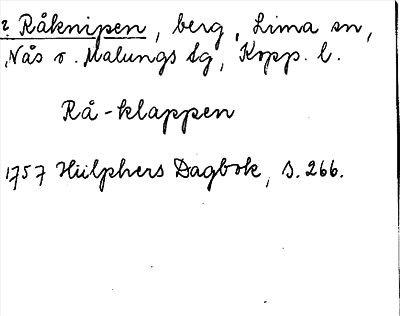 2 Råknipen, berg, Lima sn,
Nås o. Malungs dg, Kopp. l.
Rå-klappen
1757 Hülphers Dagbok, s. 266.